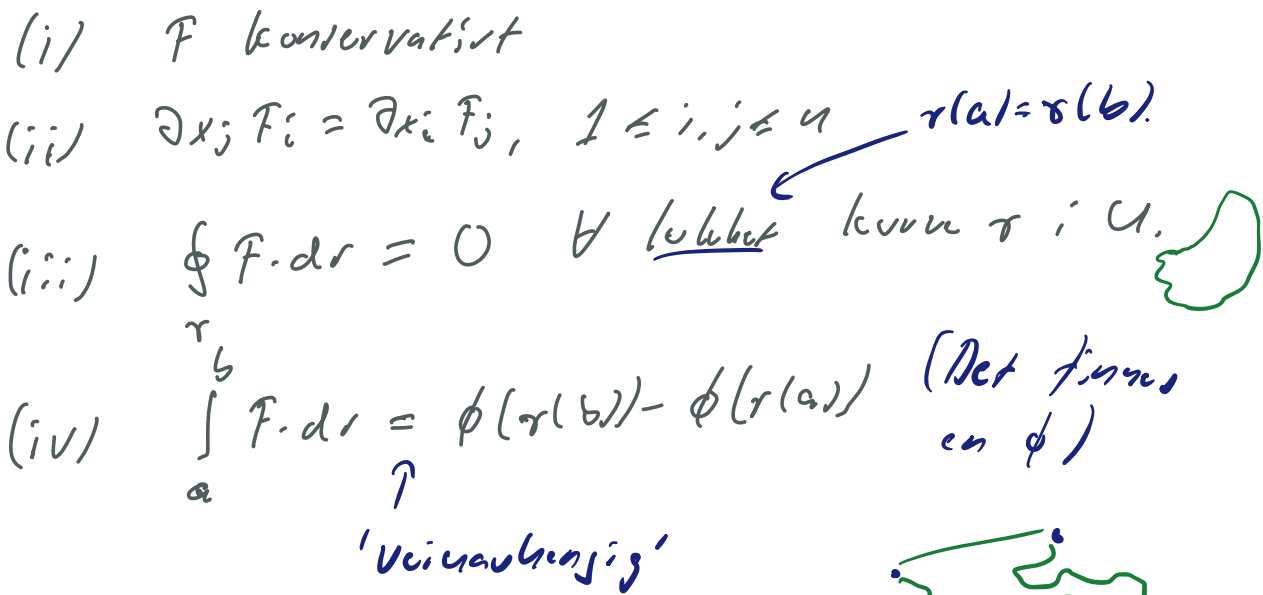 (i) F konservativt
(ii) ∂x_j F_i = ∂x_i F_j, 1 ≤ i, j ≤ n
r(a)=r(b).
(iii) ∮_r F·dr = 0 ∀ lukket kurve r i U.
(iv) ∫_a^b F·dr = φ(r(b)) - φ(r(a)) (Det finnes
en φ)
'veiuavhengig'